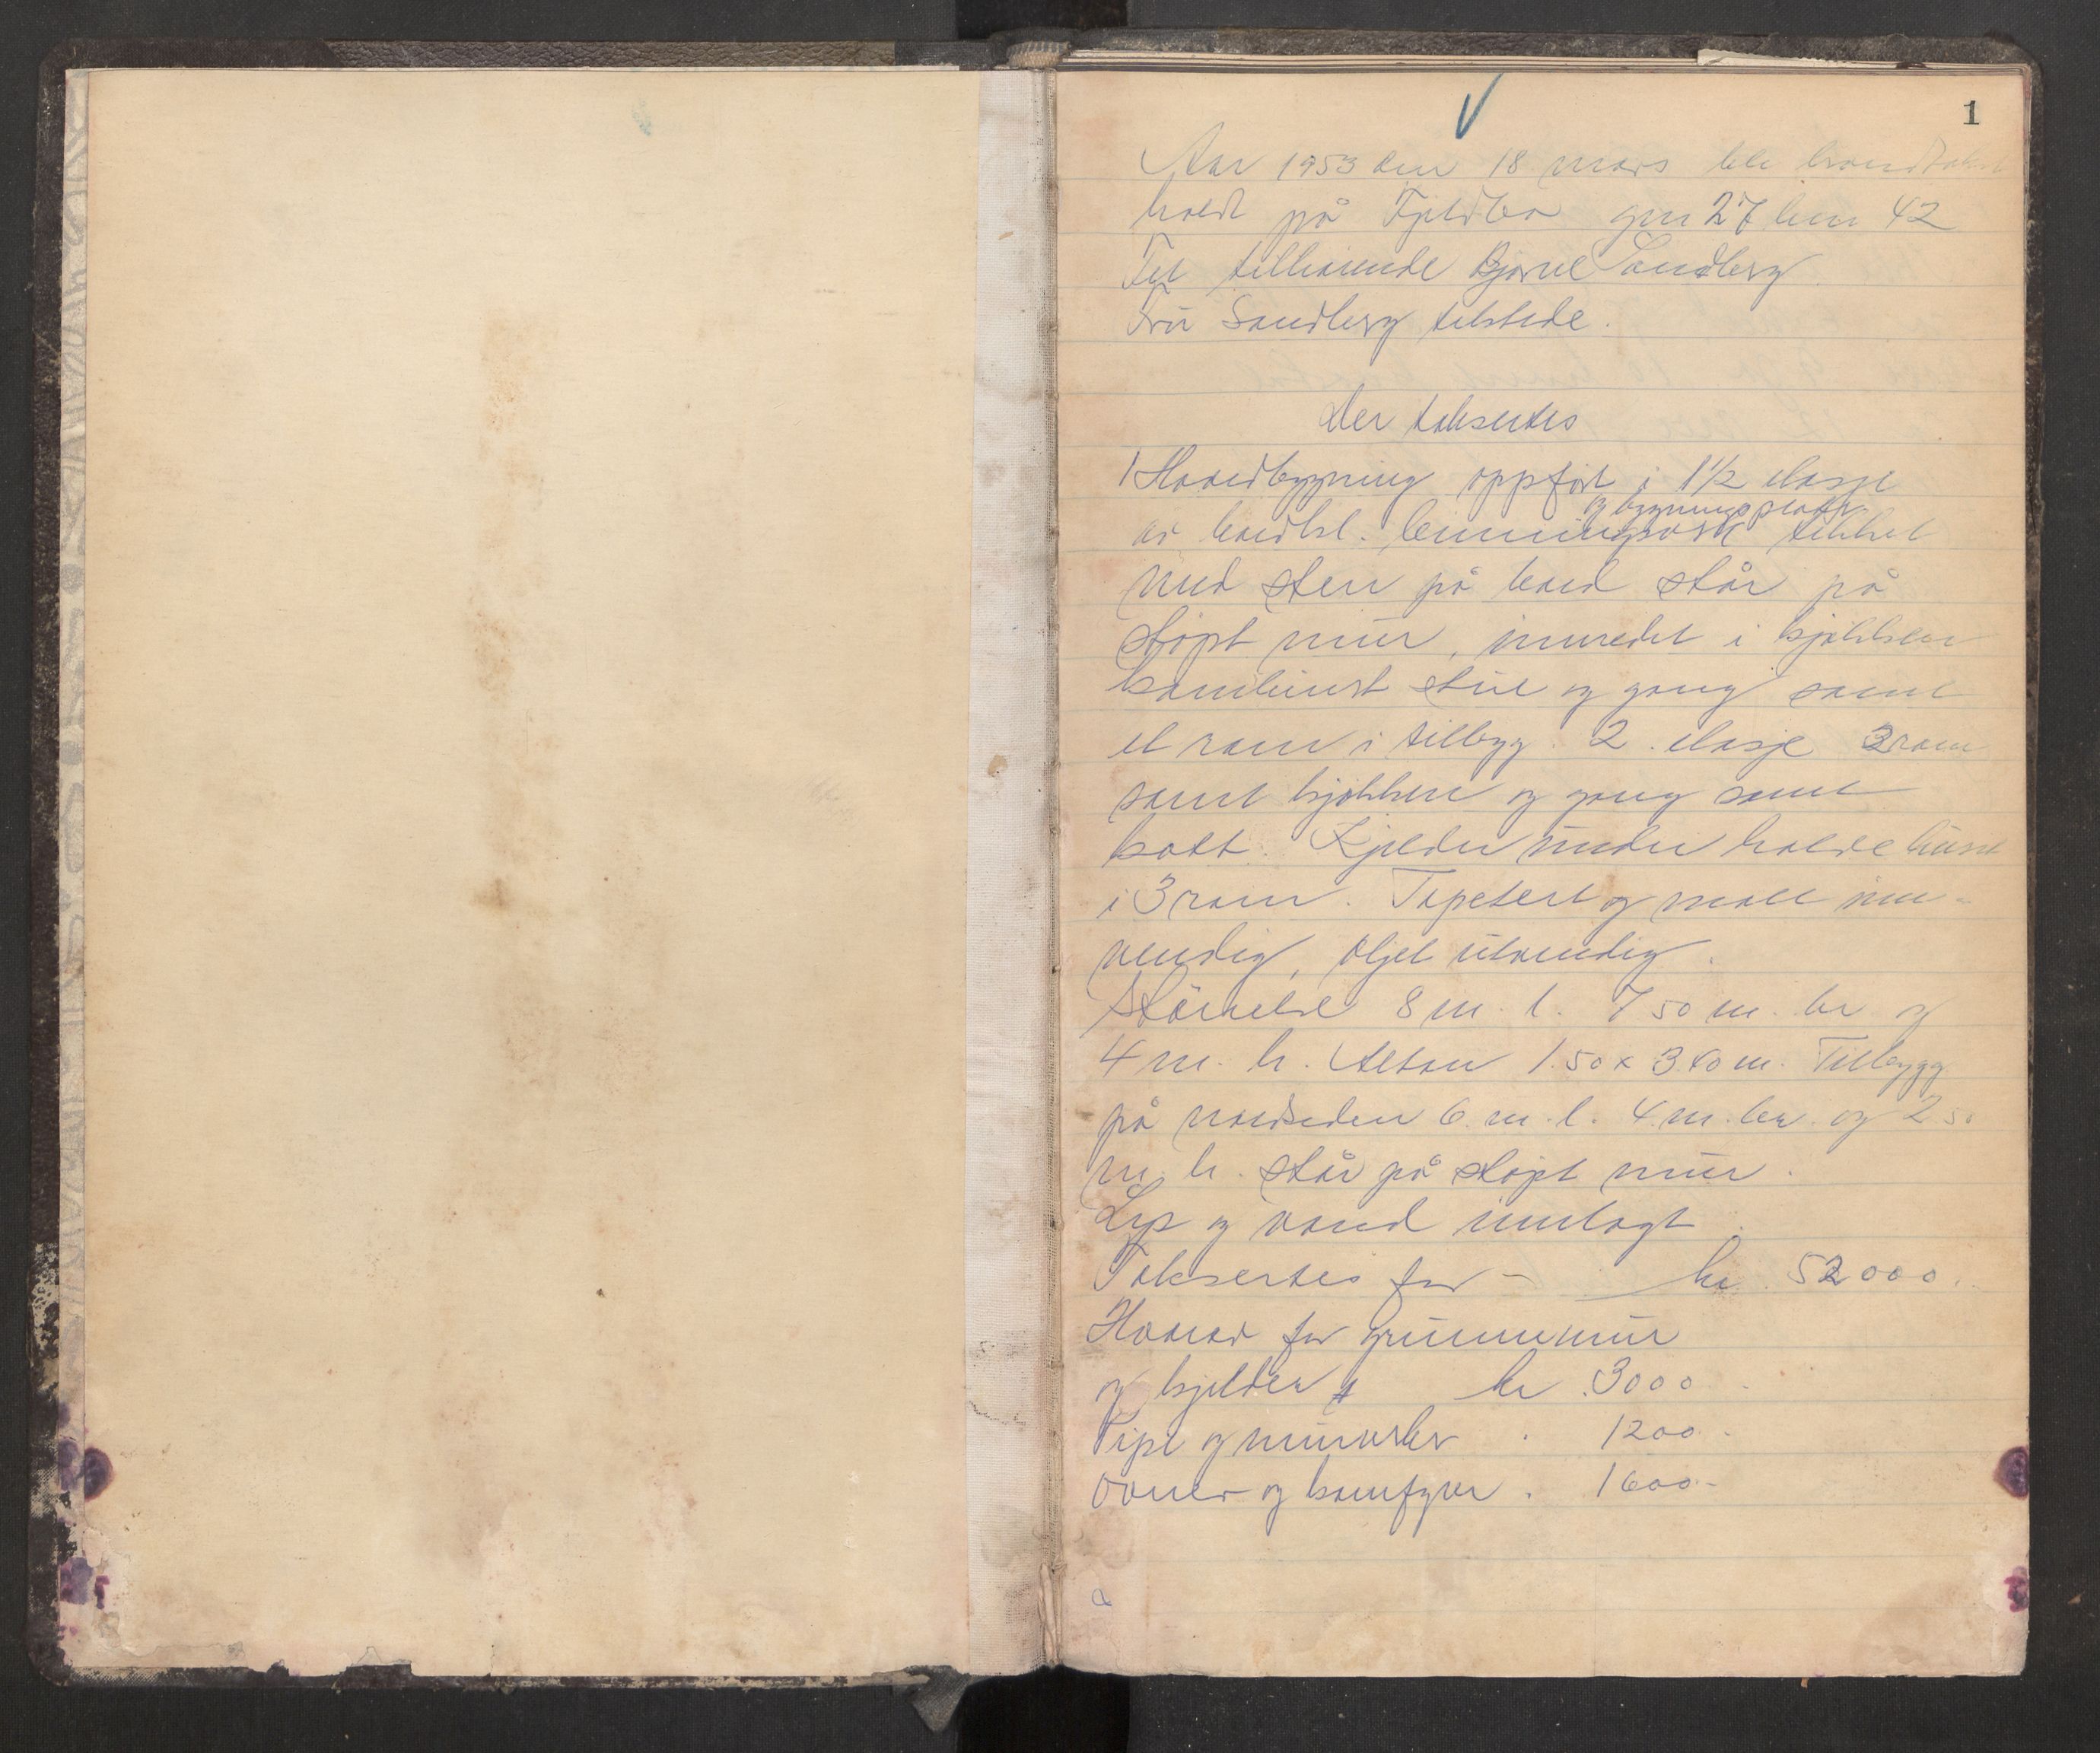 1
Aar 1953 den 18 mars ble brandtakst
holdt på Fjeldbo gnr 27 bnr 42
Til tilhørende Bjarne Sandberg
Fru Sandberg tilstede.
Der taksertes
1 Hovedbygning oppført i 1½ etasje
og bygningsplater
av bordkl. tekket
med sten på bord står på
støpt mur, innredet i kjøkken
kombinert stue og gang samt
et rom i tilbygg. 2. etasje 3 rom
samt kjøkken og gang samt
kott. Kjelder under halve huset
i 3 rom. Tapetert og malt inn-
vendig, oljet utvendig.
Størrelse 8 m. l. 7 50 m. br og
4 m. h. Altan 1.50 x 3.40 m. Tilbygg
på nordsiden 6. m. l. 4. m. br. og 2 50
m. h. står på støpt mur.
Lys og vand innlagt.
Taksertes for - kr. 52000.
Hvorav for grunnmur
og kjelder kr. 3000.
Pipe og murverker . 1200.
Ovner og komfyrer . 1600.-
a